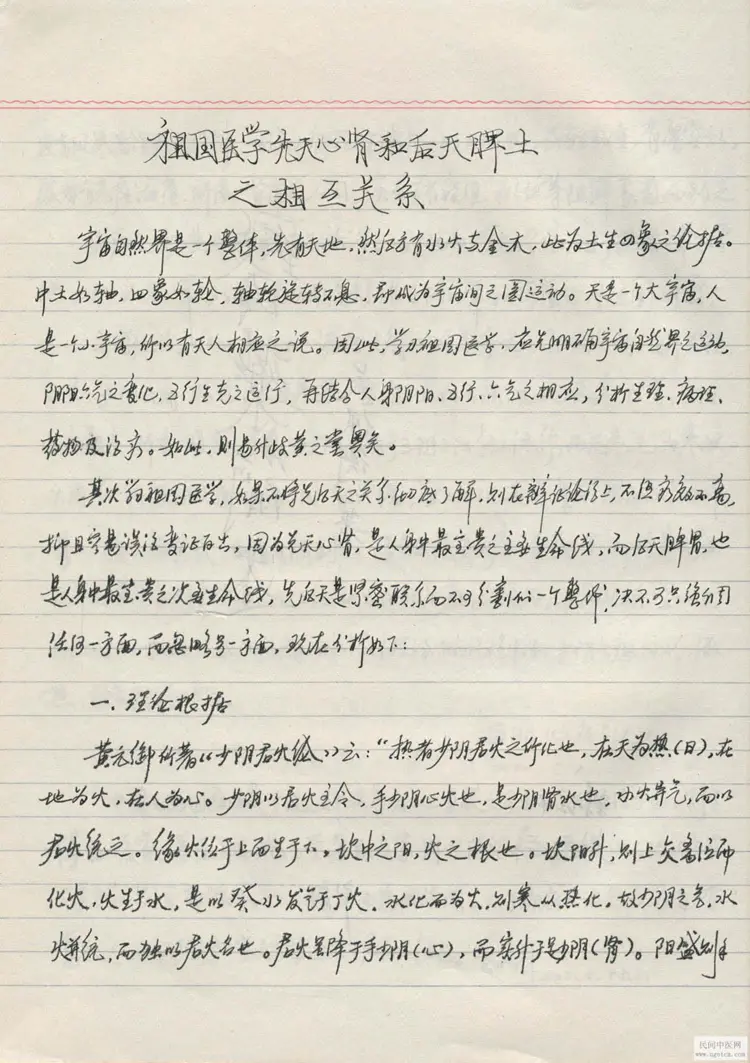 祖国医学先天心肾和后天脾土
之相互关系
宇宙自然界是一个整体，先有天地，然后方有水火与金木，此为土生四象之论据。
中土如轴，四象如轮，轴轮旋转不息，即成为宇宙间之圆运动。天是一个大宇宙，人
是一个小宇宙，所以有天人相应之说。因此，学习祖国医学，应先明确宇宙自然界之运动，
阴阳六气之变化，五行生克之运行，再结合人身阴阳、五行、六气之相应，分析生理、病理、
药物及治疗。如此，则易升岐黄之堂奥矣。
其次学习祖国医学，如果不将先后天之关系彻底了解，则在辩证论治上，不但疗效不高，
抑且容易误治变证百出，因为先天心肾，是人身中最宝贵之主要生命线，而后天脾胃，也
是人身中最宝贵之次要生命线，先后天是紧密联系而不可分割的一个整体，决不可只强调
任何一方面，而忽略另一方面，现在分析如下：
一．理论根据
黄元御所著《少阴君火论》云："热者少阴君火之所化也，在天为热(日)，在
地为火，在人为心。少阴以君火主令，手少阴心火也，足少阴肾水也，水火并气，而以
君火统之。缘火位于上而生于下。坎中之阳，火之根也。坎阳升，则上交离位而
化火，火生于水，是以癸水发气于丁火．水化而为火，则寒从热化。故少阴之气，水
火并统，而独以君火名也。君火虽降于手少阴(心)，而实升于足少阴(肾)。阳盛则手
民间中医网